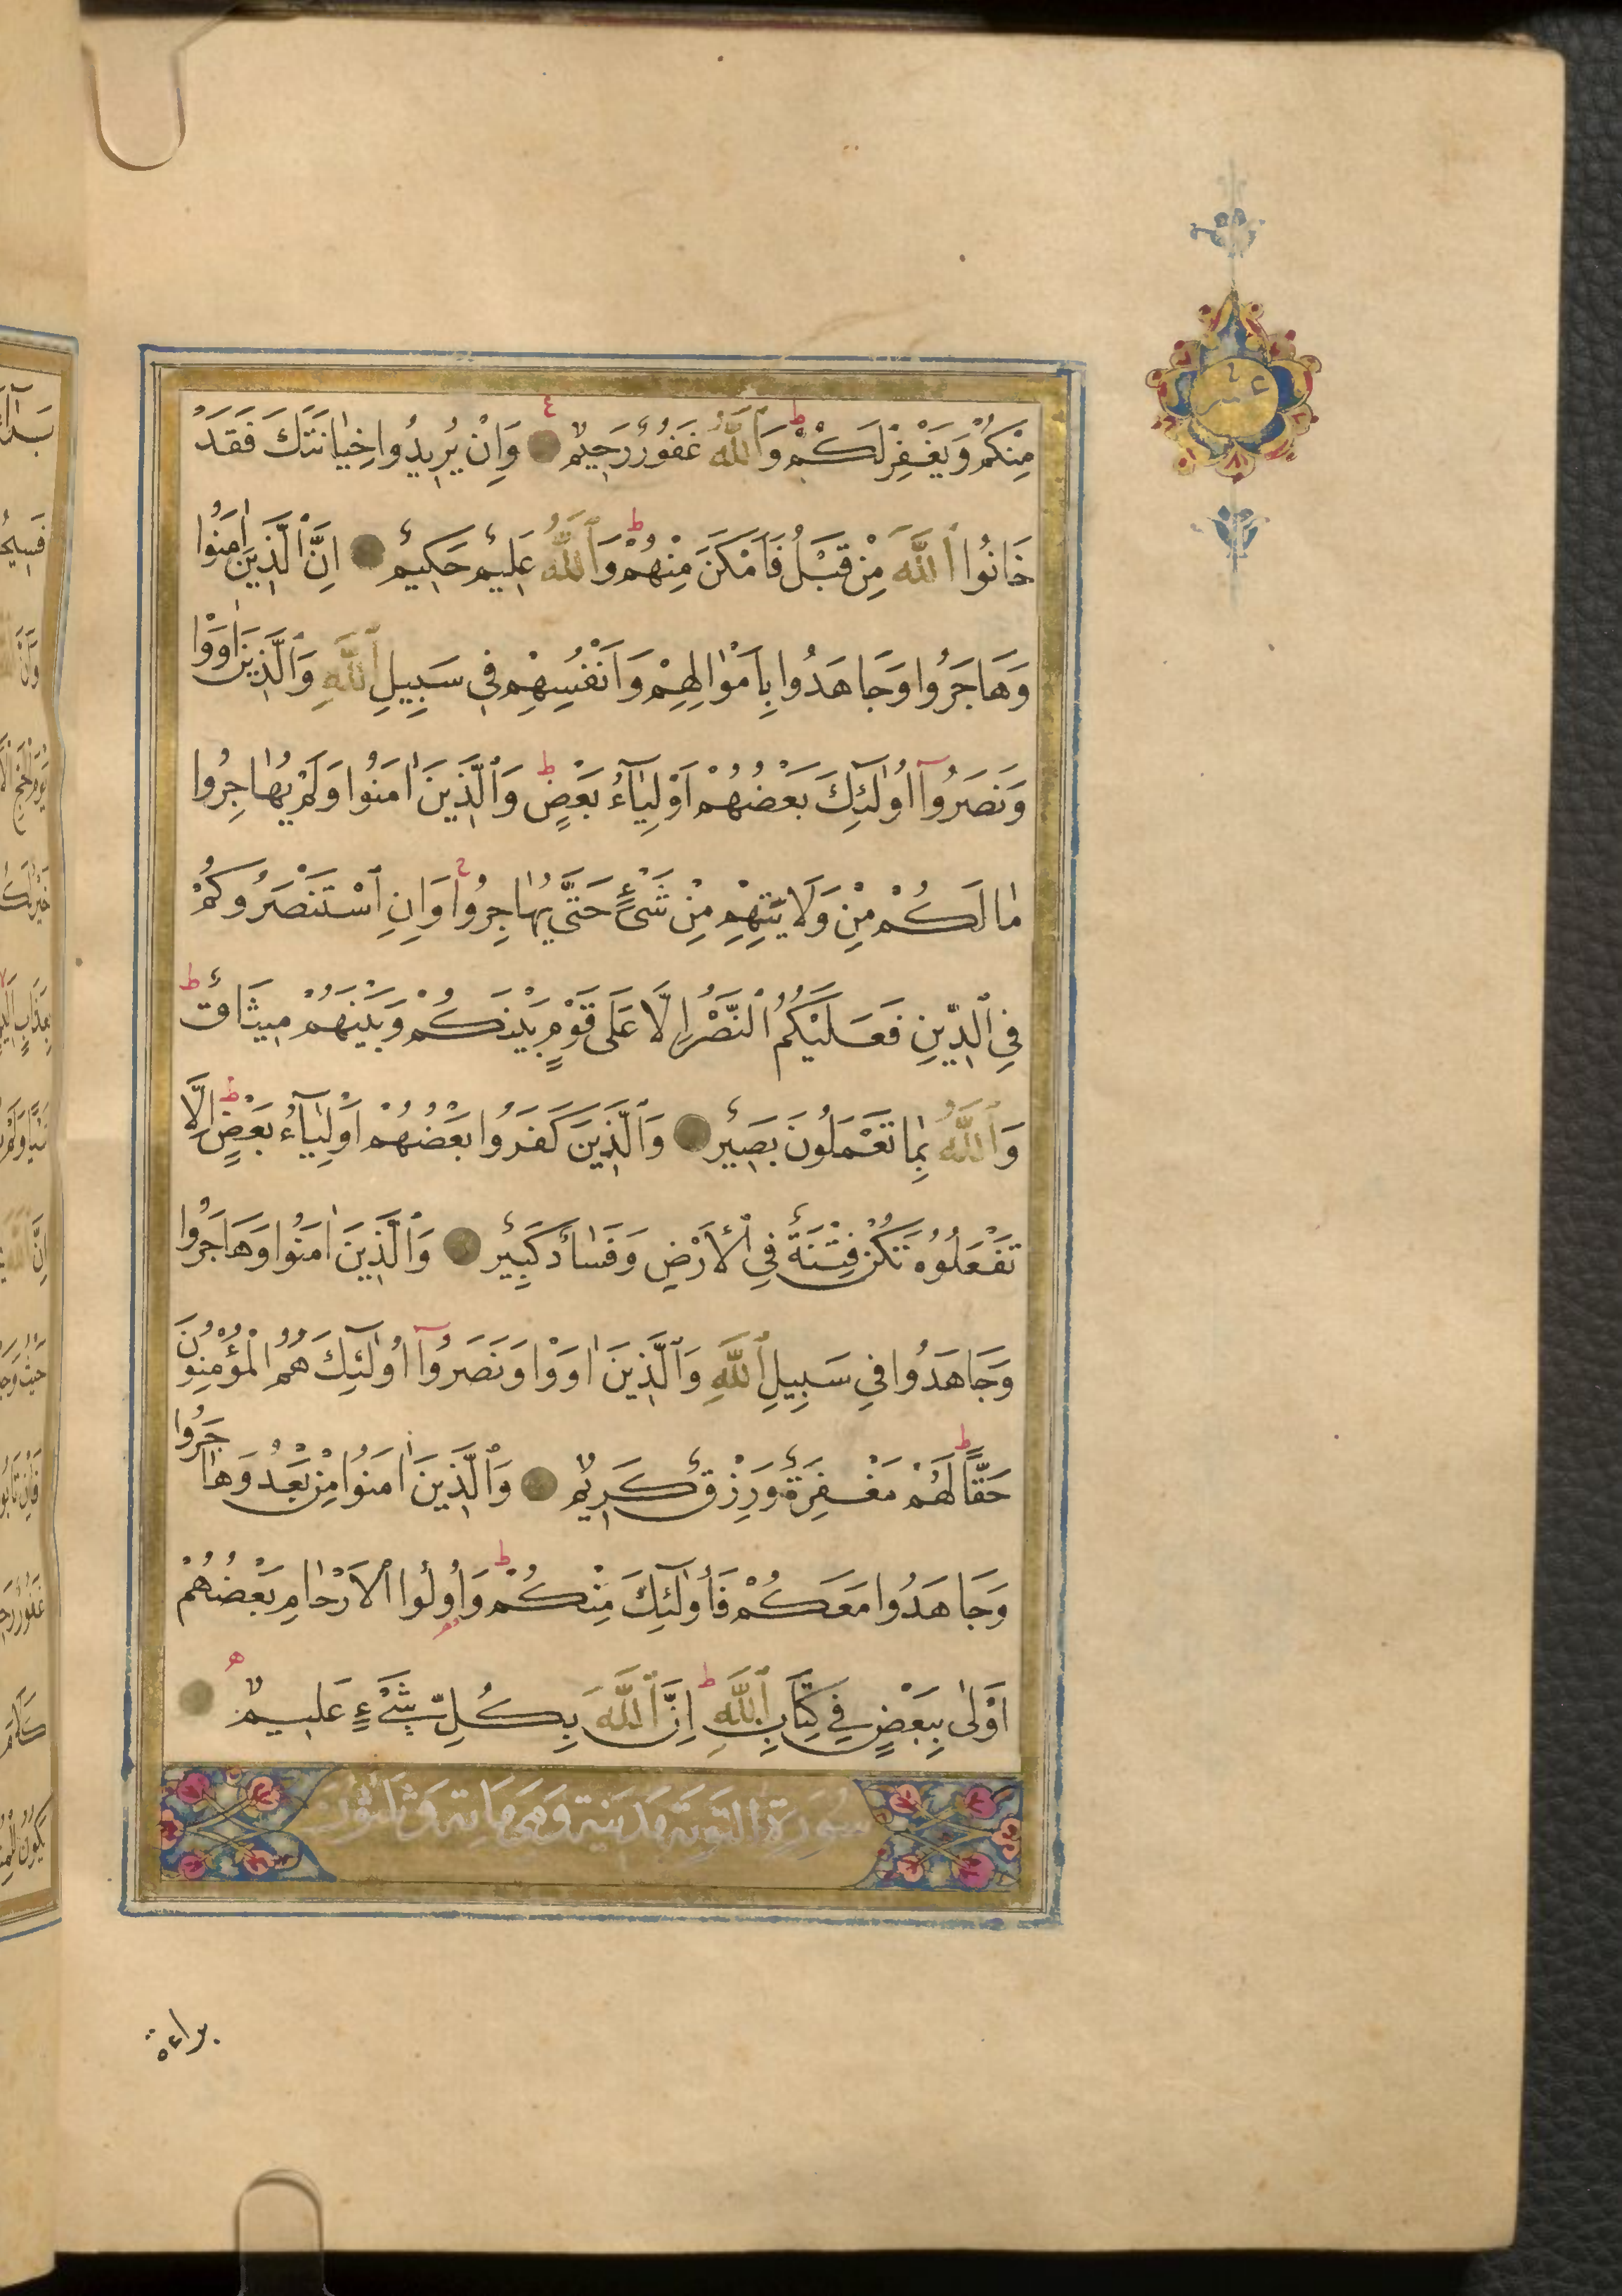 عشر
مِنْكُمْ وَيَغْفِرْ لَكُمْ ط وَٱللّٰهُ غَفُورٌ رَحِيمٌ ٤ وَاِنْ يُرِيدُوا خِيٰانَتَكَ فَقَدْ
خَانُوا ٱللّٰهَ مِنْ قَبْلُ فَاَمْكَنَ مِنْهُمْ ط وَٱللّٰهُ عَلِيمٌ حَكِيمٌ اِنَّ ٱلَّذِينَ اٰمَنُوا
وَهَاجَرُوا وَجَاهَدُوا بِاَمْوٰالِهِمْ وَاَنْفُسِهِمْ فِي سَبِيلِ ٱللّٰهِ وَٱلَّذِينَ اٰوَوْا
وَنَصَرُوآ اُولٰٓئِكَ بَعْضُهُمْ اَوْلِيٰٓاءُ بَعْضٍ ط وَٱلَّذِينَ اٰمَنُوا وَلَمْ يُهٰاجِرُوا
مٰا لَكُمْ مِنْ وَلَايَتِهِمْ مِنْ شَىْءٍ حَتَّى يُهٰاجِرُوا وَاِنِ ٱسْتَنْصَرُوكُمْ
فِي ٱلدِّينِ فَعَلَيْكُمُ ٱلنَّصْرُ اِلَّا عَلَى قَوْمٍ بَيْنَكُمْ وَبَيْنَهُمْ مِيثَاقٌ ط
وَٱللّٰهُ بِمٰا تَعْمَلُونَ بَصِيرٌ وَٱلَّذِينَ كَفَرُوا بَعْضُهُمْ اَوْلِيٰٓاءُ بَعْضٍ ط اِلَّا
تَفْعَلُوهُ تَكُنْ فِتْنَةٌ فِي ٱلْاَرْضِ وَفَسٰادٌ كَبِيرٌ وَٱلَّذِينَ اٰمَنُوا وَهَاجَرُوا
وَجَاهَدُوا فِي سَبِيلِ ٱللّٰهِ وَٱلَّذِينَ اٰوَوْا وَنَصَرُوآ اُولٰٓئِكَ هُمُ الْمُؤْمِنُونَ
حَقًّا ط لَهُمْ مَغْفِرَةٌ وَرِزْقٌ كَرِيمٌ وَٱلَّذِينَ اٰمَنُوا مِنْ بَعْدُ وَهَاجَرُوا
وَجَاهَدُوا مَعَكُمْ فَاُولٰٓئِكَ مِنْكُمْ ط وَاُولُوا ٱلْاَرْحٰامِ بَعْضُهُمْ
اَوْلٰى بِبَعْضٍ فِي كِتَابِ ٱللّٰهِ ط اِنَّ ٱللّٰهَ بِكُلِّ شَىْءٍ عَلِيمٌ ه
سُورَة التوبَة مَدَنيَّة وَهِيَ مَاية وَثلَثُونَ
براءة